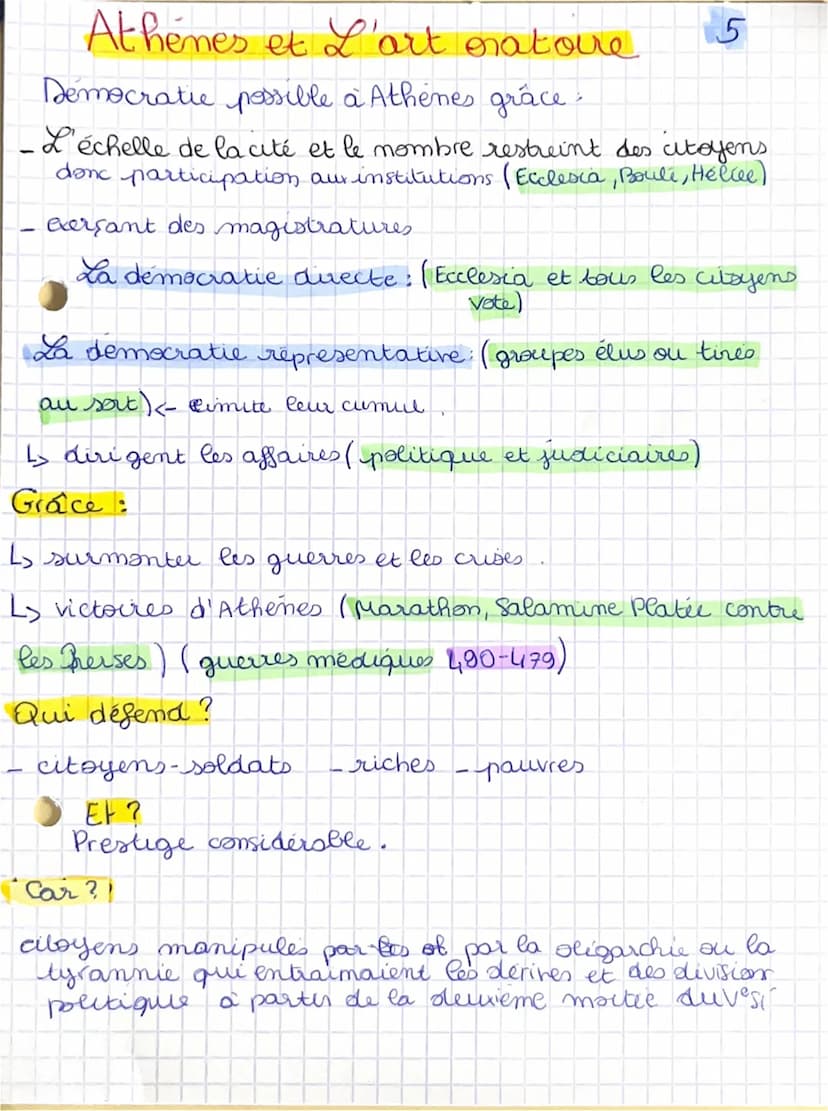 Athènes et L'art oratoire
5
Démocratie possible à Athènes grâce :
- L'échelle de la cité et le nombre restreint des citoyens
donc participation aux institutions (Ecclesia, Boulè, Hélice)
- exerçant des magistratures
La démocratie directe : (Ecclesia et tous les citoyens
vote)
La démocratie représentative : (groupes élus ou tirés
au sort) <- limite leur cumul.
↳ dirigent les affaires (politique et judiciaires)
Grâce :
↳ surmonter les guerres et les crises.
↳ victoires d'Athènes (Marathon, Salamine Platée contre
les Perses) (guerres médiques 490-479)
Qui défend ?
- citoyens-soldats - riches - pauvres
Et ?
Prestige considérable.
Car ?
citoyens manipulés par la oligarchie ou la
tyrannie qui entraînaient les dérives et des division
politique à partir de la deuxième moitié du Ve si